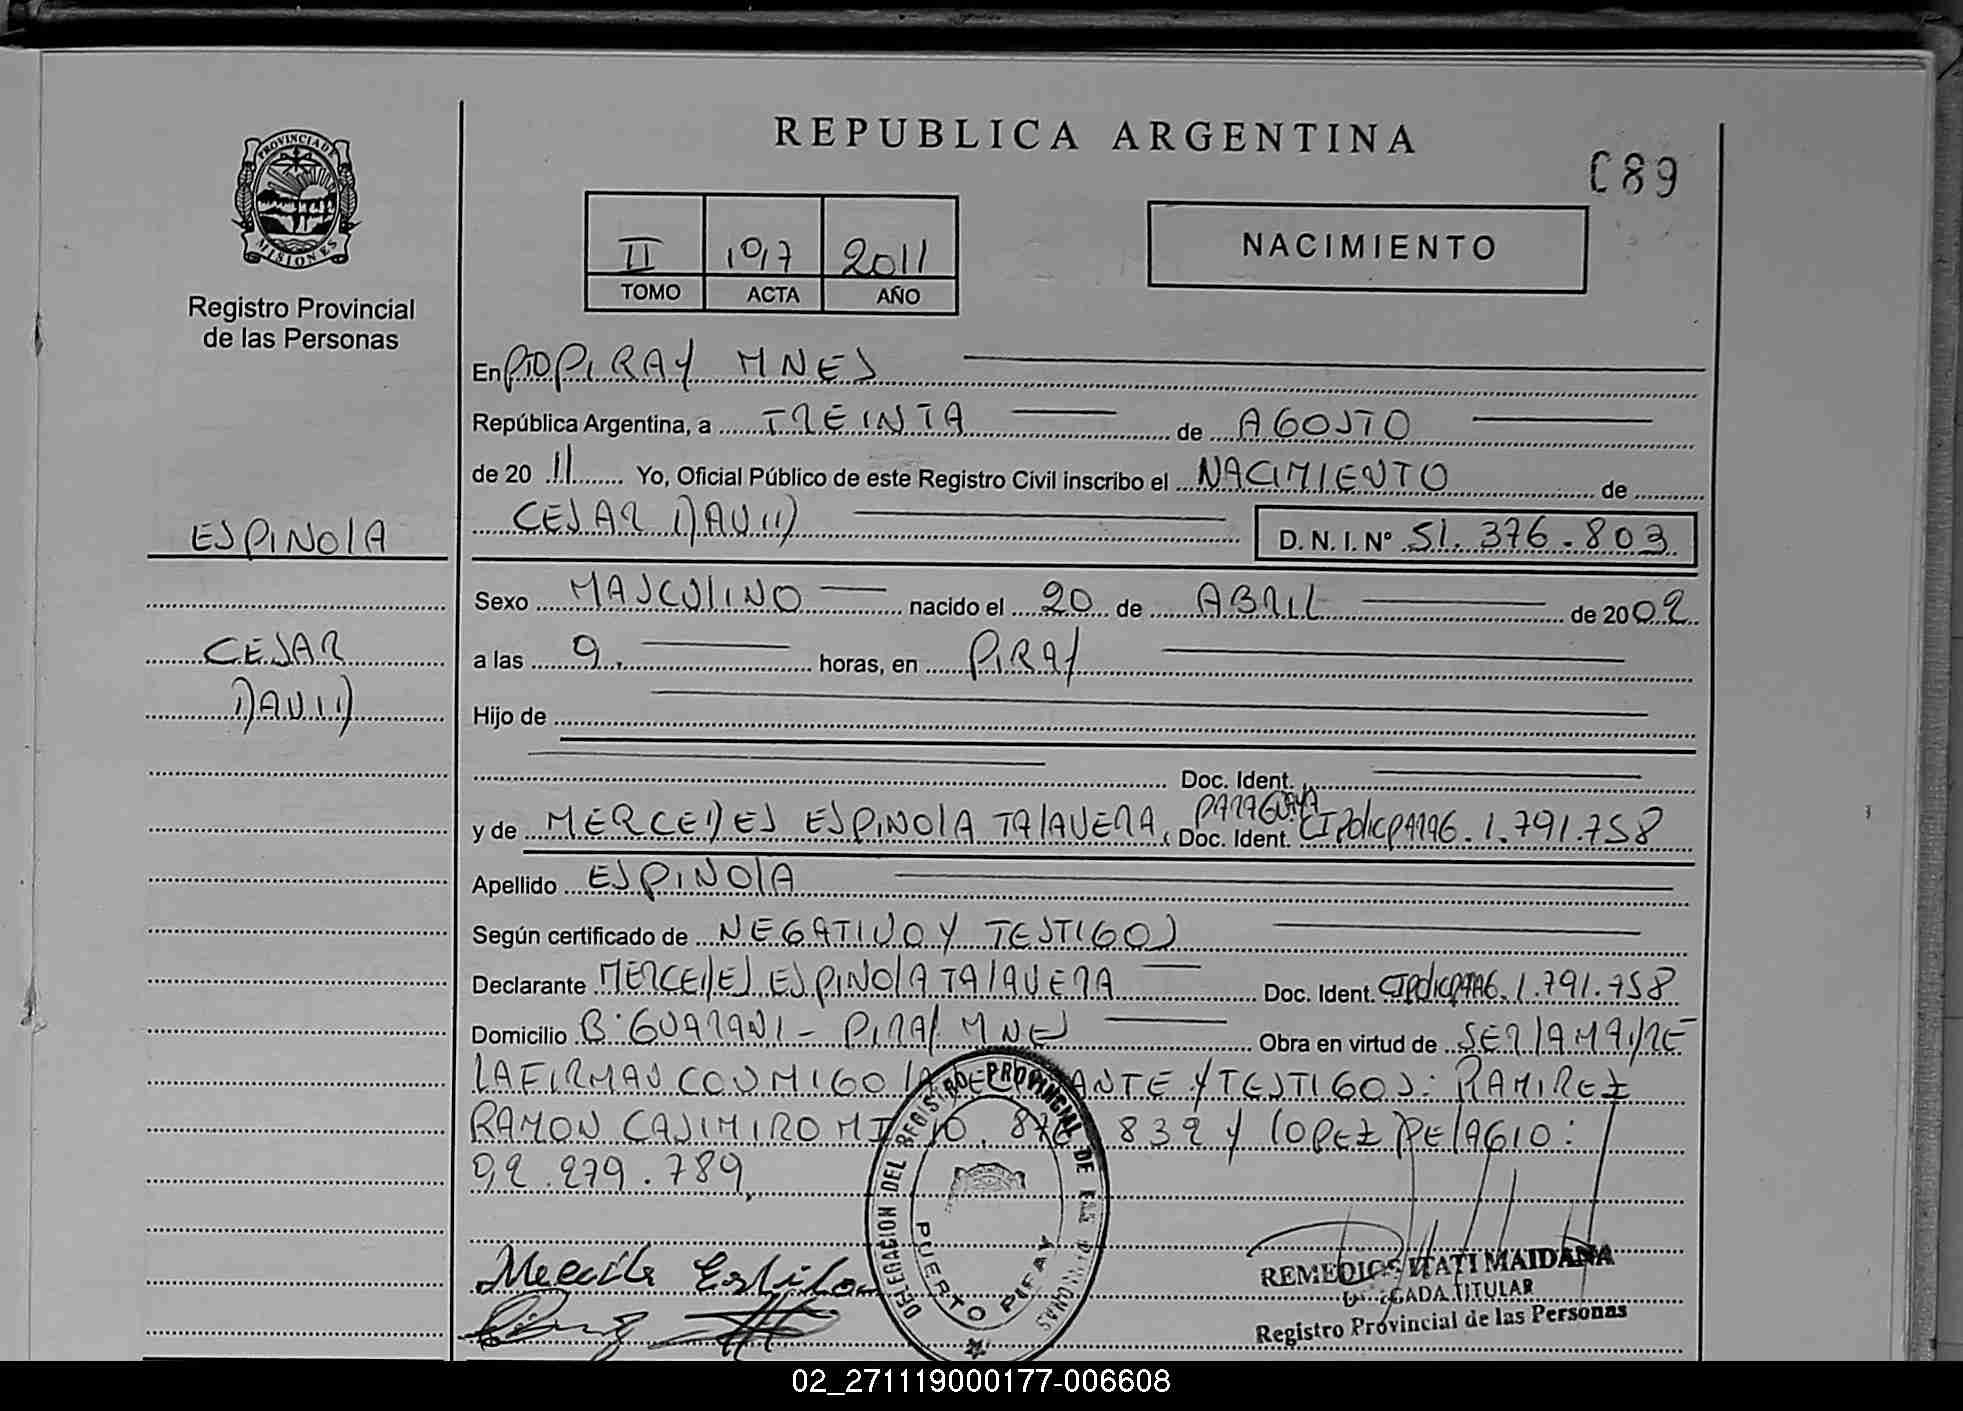 REPUBLICA ARGENTINA
C89
PROVINCIA DE MISIONES
Registro Provincial
de las Personas
II 197 2011
TOMO ACTA AÑO
NACIMIENTO
En PTO PIRAY MNES
República Argentina, a TREINTA de AGOSTO
de 20 11 Yo, Oficial Público de este Registro Civil inscribo el NACIMIENTO de
CESAR DAVID D.N.I. Nº 51.376.803
ESPINOLA
Sexo MASCULINO nacido el 20 de ABRIL de 2002
CESAR
a las 9, horas, en PIRAY
DAVID
Hijo de
Doc. Ident.
y de MERCEDES ESPINOLA TALAVERA, PARAGUAYA Doc. Ident. CI Polic PARAG. 1.791.758
Apellido ESPINOLA
Según certificado de NEGATIVO Y TESTIGOS
Declarante MERCEDES ESPINOLA TALAVERA Doc. Ident. 1.791.758
Domicilio Bº GUARANI - PIRAY MNES Obra en virtud de SER LA MADRE
LA FIRMAN CONMIGO LA ANTE Y TESTIGOS: RAMIREZ
RAMON CASIMIRO 832 Y LOPEZ PELAGIO:
92.279.789,
DELEGACION DEL REGISTRO PROVINCIAL DE LAS PERSONAS
PUERTO PIRAY
REMEDIOS ITATI MAIDANA
DELEGADA TITULAR
Registro Provincial de las Personas
02_271119000177-006608